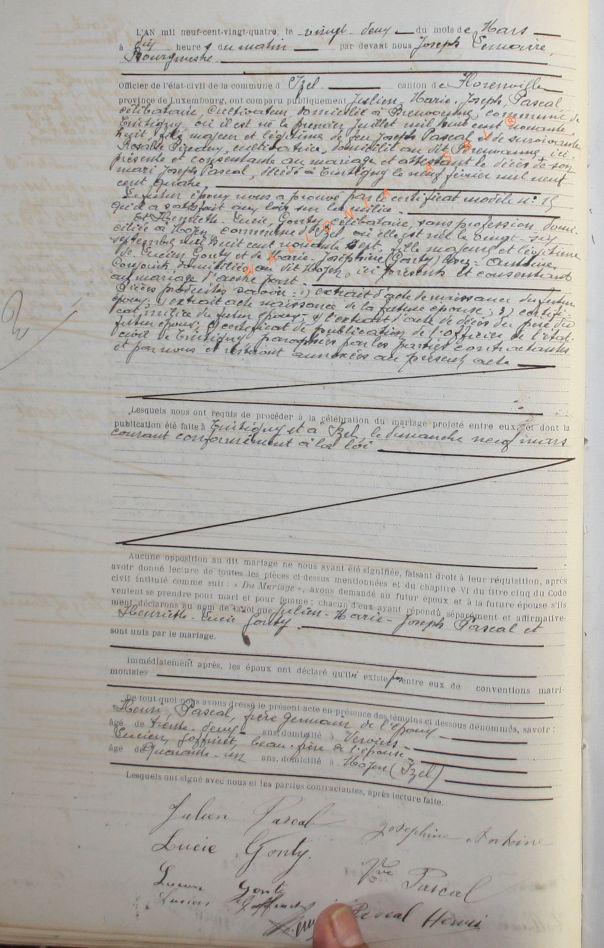 L'AN mil neuf-cent-vingt-quatre, le vingt deux du mois de Mars
à dix heures du matin par devant nous Joseph Lemaire,
Bourgmestre
Officier de l'état-civil de la commune d'Izel canton de Florenville
province de Luxembourg, ont comparu publiquement Julien-Marie-Joseph Pascal
célibataire, cultivateur, domicilié à commune de
Tintigny où il est né le premier Juillet mil huit cent nonante
huit, fils majeur et légitime de feu Joseph Pascal et de survivante
Rosalie cultivatrice, domiciliée au dit ici
présente et consentante au mariage et attestant le décès de son
mari Joseph Pascal, décédé à Tintigny le neuf février mil neuf
cent quatre
Le futur époux nous a prouvé par le certificat modèle n° 15
qu'il a satisfait aux lois sur la milice.
Et Henriette Lucie Gonty, célibataire, sans profession, domi
ciliée à Moyen, commune d'Izel où elle est née le vingt-six
septembre mil huit cent nonante sept, fille majeure et légitime
de Lucien Gonty et de Marie-Joséphine
conjoints domiciliés au dit Moyen, ici présents et consentant
au mariage d'autre part.
Pièces produites savoir: 1) extrait d'acte de naissance du futur
époux; 2) extrait acte naissance de la future épouse; 3) certifi
cat milice du futur époux; 4) extrait d'acte de décès du père du
futur époux; 5) certificat de publication de l'officier de l'état
civil de Tintigny paraphées par les parties contractantes
et par nous et resteront annexées au présent acte
Lesquels nous ont requis de procéder à la célébration du mariage projeté entre eux, et dont la
publication été faite à Tintigny et à Izel, le dimanche neuf mars
courant conformément à la loi
Aucune opposition au dit mariage ne nous ayant été signifiée, faisant droit à leur réquisition, après
avoir donné lecture de toutes les pièces ci-dessus mentionnées et du chapitre VI du titre cinq du Code
civil intitulé comme suit: « Du Mariage », avons demandé au futur époux et à la future épouse s'ils
veulent se prendre pour mari et pour femme; chacun d'eux ayant répondu séparément et affirmative-
ment déclarons au nom de la loi que Julien-Marie-Joseph Pascal et
Henriette-Lucie Gonty
sont unis par le mariage.
Immédiatement après, les époux ont déclaré qu'il existe pas entre eux de conventions matri-
moniales
De tout quoi nous avons dressé le présent acte en présence des témoins ci-dessous dénommés, savoir:
Henri Pascal, frère germain de l'époux
âgé de trente-deux ans, domicilié à Verviers
Lucien Goffinet, beau-frère de l'épouse
âgé de quarante-un ans, domicilié à Moyen (Izel)
Lesquels ont signé avec nous et les parties contractantes, après lecture faite.
Julien Pascal Joséphine Antoine
Lucie Gonty Vve Pascal
Lucien Gonty
Lucien Goffinet
Pascal Henri